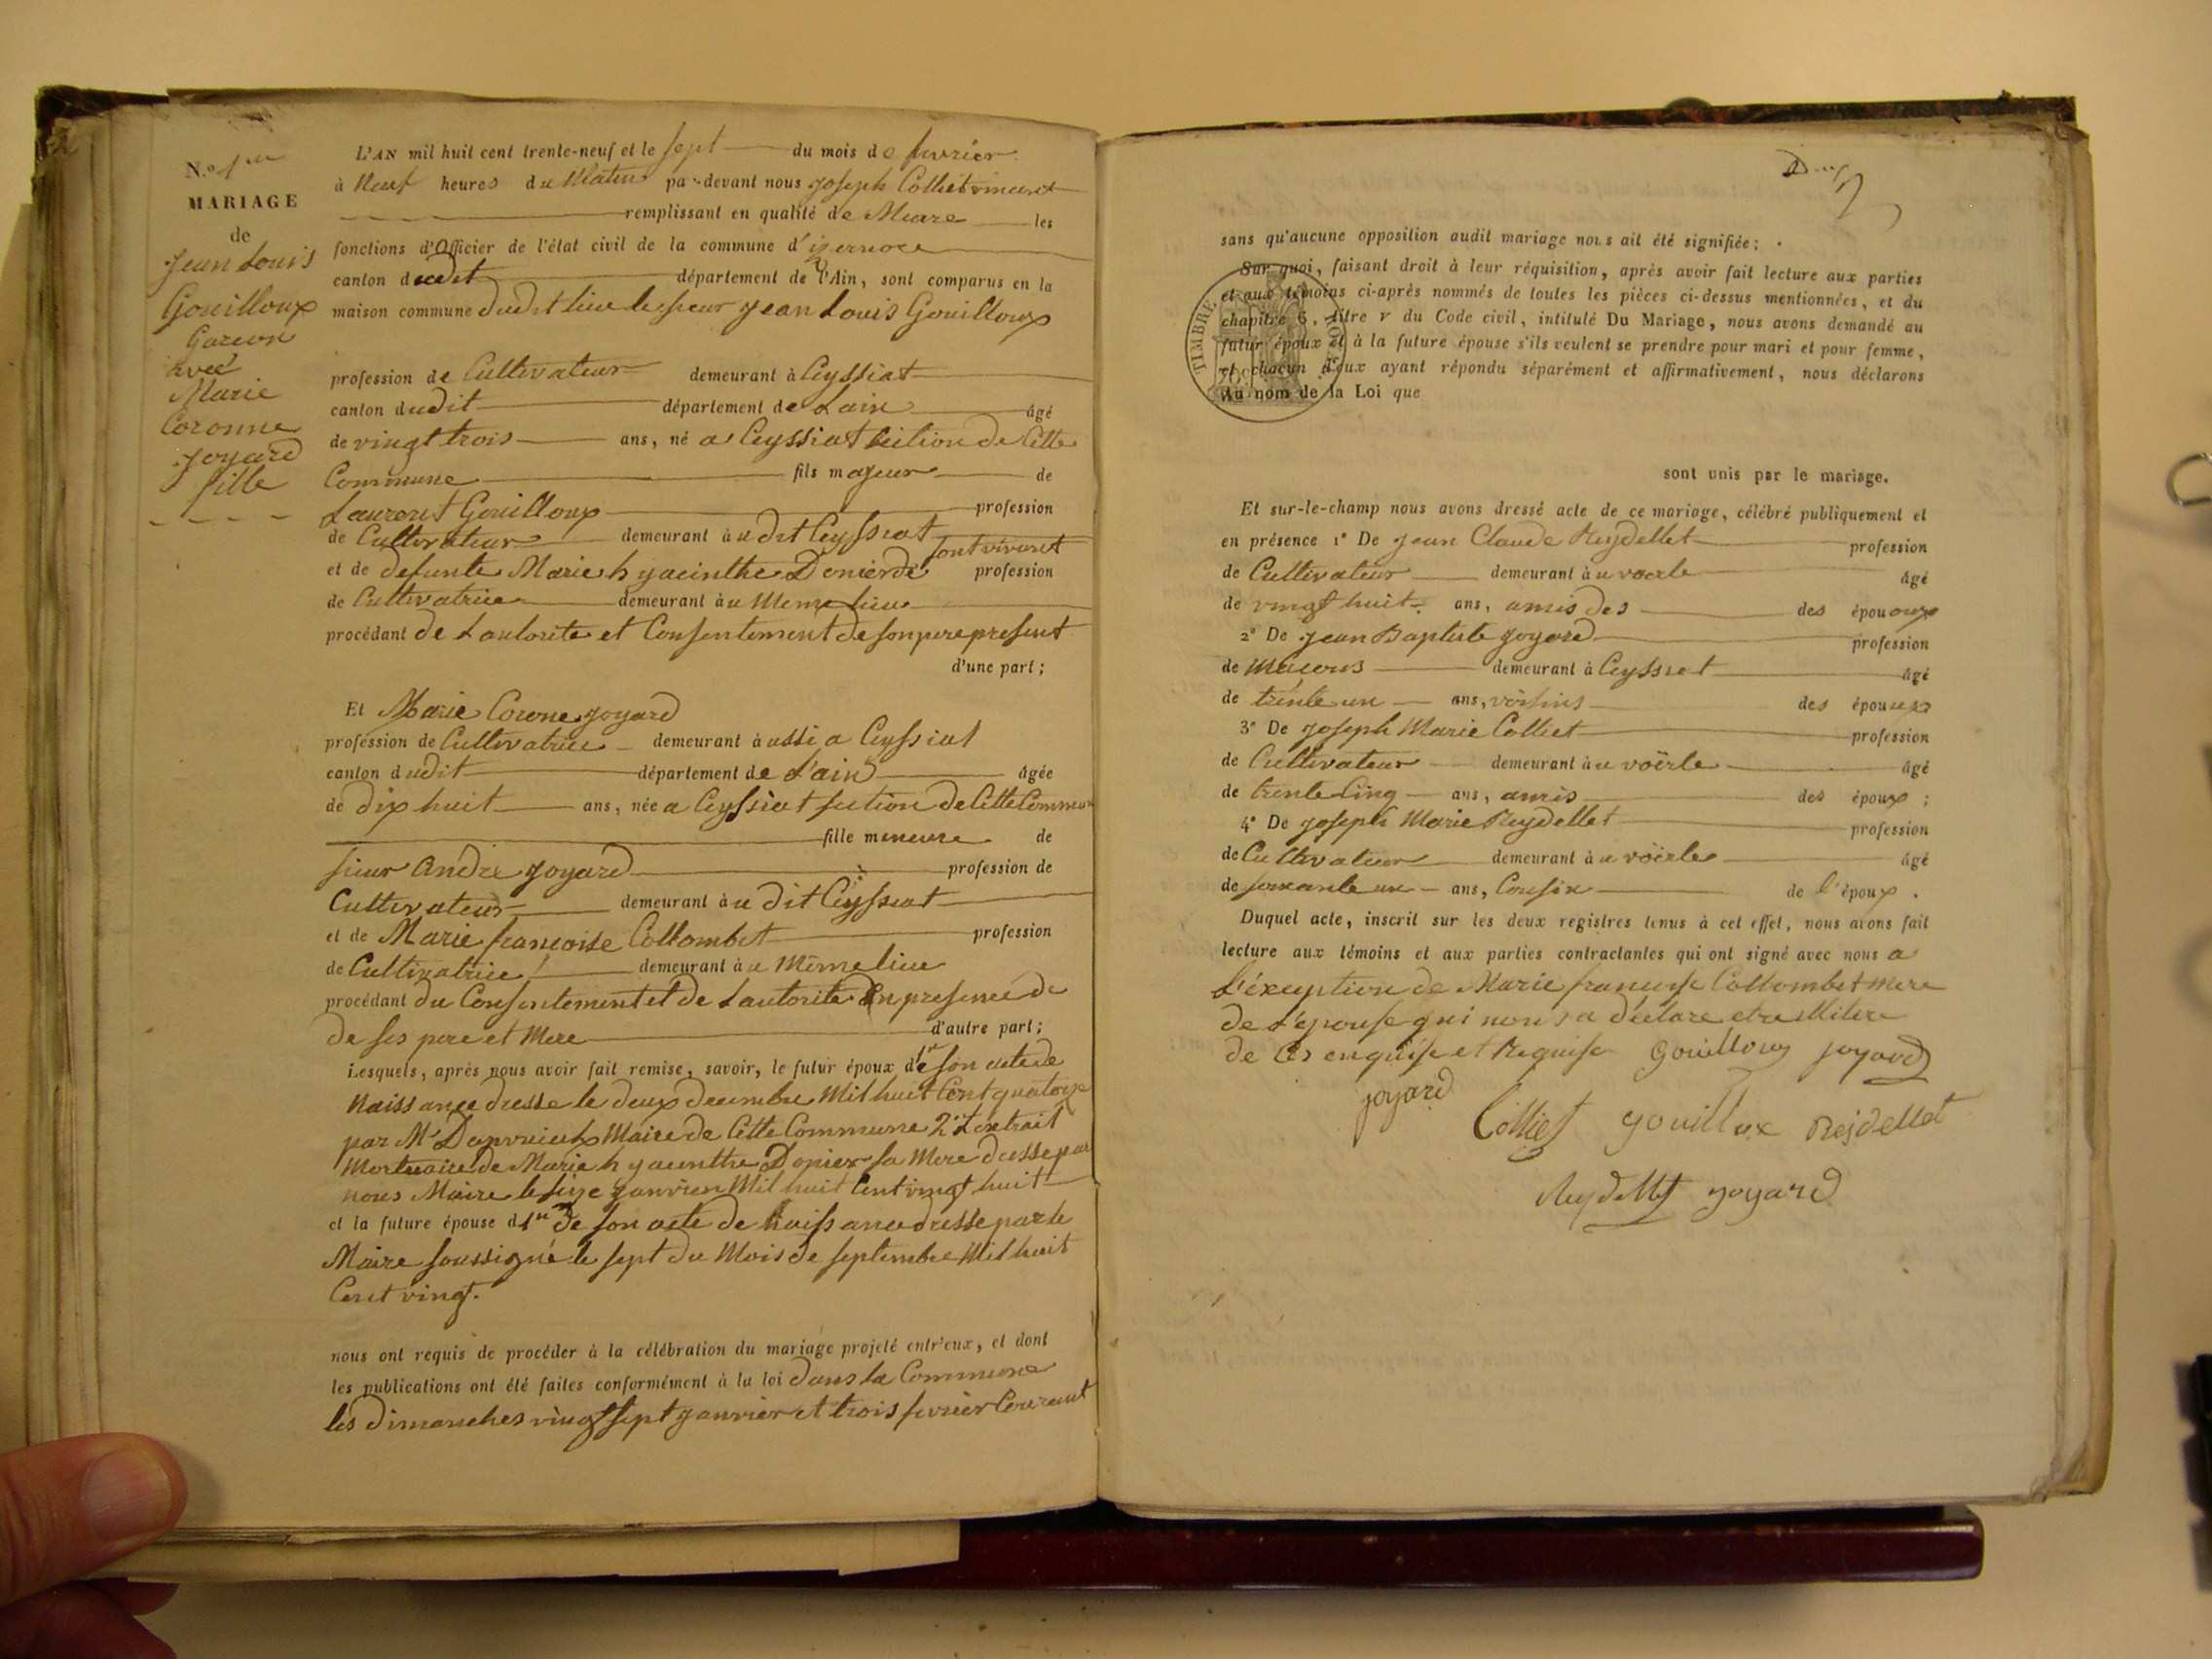 N.º 1er
MARIAGE
de
Jean Louis
Gouilloux
Garcon
avec
Marie
Coronne
Joyard
fille
L'AN mil huit cent trente-neuf et le sept du mois de fevrier
à Neuf heures du Matin par-devant nous Joseph Colliet vincent
remplissant en qualité de Maire les
fonctions d'Officier de l'état civil de la commune d'izernore
canton dudit département de l'Ain, sont comparus en la
maison commune dudit lieu le sieur Jean Louis Gouilloux
profession de Cultivateur demeurant à Ceyssiat
canton dudit département de Lain âgé
de vingt trois ans, né a Ceyssiat section de Cette
Commune fils majeur de
Laurent Gouilloux profession
de Cultivateur demeurant audit Ceyssiat
et de defunte Marie hyacinthe Donier de son vivant profession
de Cultivatrice demeurant au meme lieu
procédant de Lautorite et Consentement de son pere present
d'une part;
Et Marie Corone Joyard
profession de Cultivatrice demeurant aussi a Ceyssiat
canton dudit département de L'ain âgée
de dix huit ans, née a Ceyssiat section de Cette Commune
fille meneure de
sieur andré Joyard profession de
Cultivateur demeurant au dit Ceyssiat
et de Marie francoise Collombet profession
de Cultivatrice demeurant au même lieu
procédant du Consentement et de Lautorite En presence de
de ses pere et Mere d'autre part;
Lesquels, après nous avoir fait remise, savoir, le futur époux de 1er son acte de
Naissance dresse le deux decembre Mil huit Cent quatorze
par Mr Maire de Cette Commune 2º L'extrait
Mortuaire de Marie hyacinthe Donier sa Mere dresse par
nous Maire le seize janvier Mil huit Cent vingt huit
et la future épouse d 1er de son acte de Naissance dresse par le
Maire soussigné le sept du Mois de septembre Mil huit
Cent vingt.
nous ont requis de procéder à la célébration du mariage projeté entr'eux, et dont
les publications ont été faites conformément à la loi dans la Commune
les dimanches vingt sept janvier et trois fevrier Courant
sans qu'aucune opposition audit mariage nous ait été signifiée;
Sur quoi, faisant droit à leur réquisition, après avoir fait lecture aux parties
et aux témoins ci-après nommés de toutes les pièces ci-dessus mentionnées, et du
chapitre 6, titre v du Code civil, intitulé Du Mariage, nous avons demandé au
futur époux et à la future épouse s'ils veulent se prendre pour mari et pour femme,
et chacun d'eux ayant répondu séparément et affirmativement, nous déclarons
Au nom de la Loi que
TIMBRE ROYAL
sont unis par le mariage.
Et sur-le-champ nous avons dressé acte de ce mariage, célébré publiquement et
en présence 1º De Jean Claude Reydellet profession
de Cultivateur demeurant au voerle âgé
de vingt huit ans, amis des des épououx
2º De Jean Baptiste Joyard profession
de Macons demeurant à Ceyssiat âgé
de trente un ans, voisins des époux
3º De Joseph Marie Colliet profession
de Cultivateur demeurant au voërle âgé
de trente Cinq ans, amis des époux;
4º De Joseph Marie Reydellet profession
de Cultivateur demeurant au voërle âgé
de soixante un ans, Cousin de l'époux.
Duquel acte, inscrit sur les deux registres tenus à cet effet, nous avons fait
lecture aux témoins et aux parties contractantes qui ont signé avec nous a
L'éxception de Marie francoise Collombet mere
de L'epouse qui nous a déclaré etre illitere
de Ces enquise et Requise Gouilloux joyard
joyard
Colliet gouilloux Rejdellet
Reydellet joyard